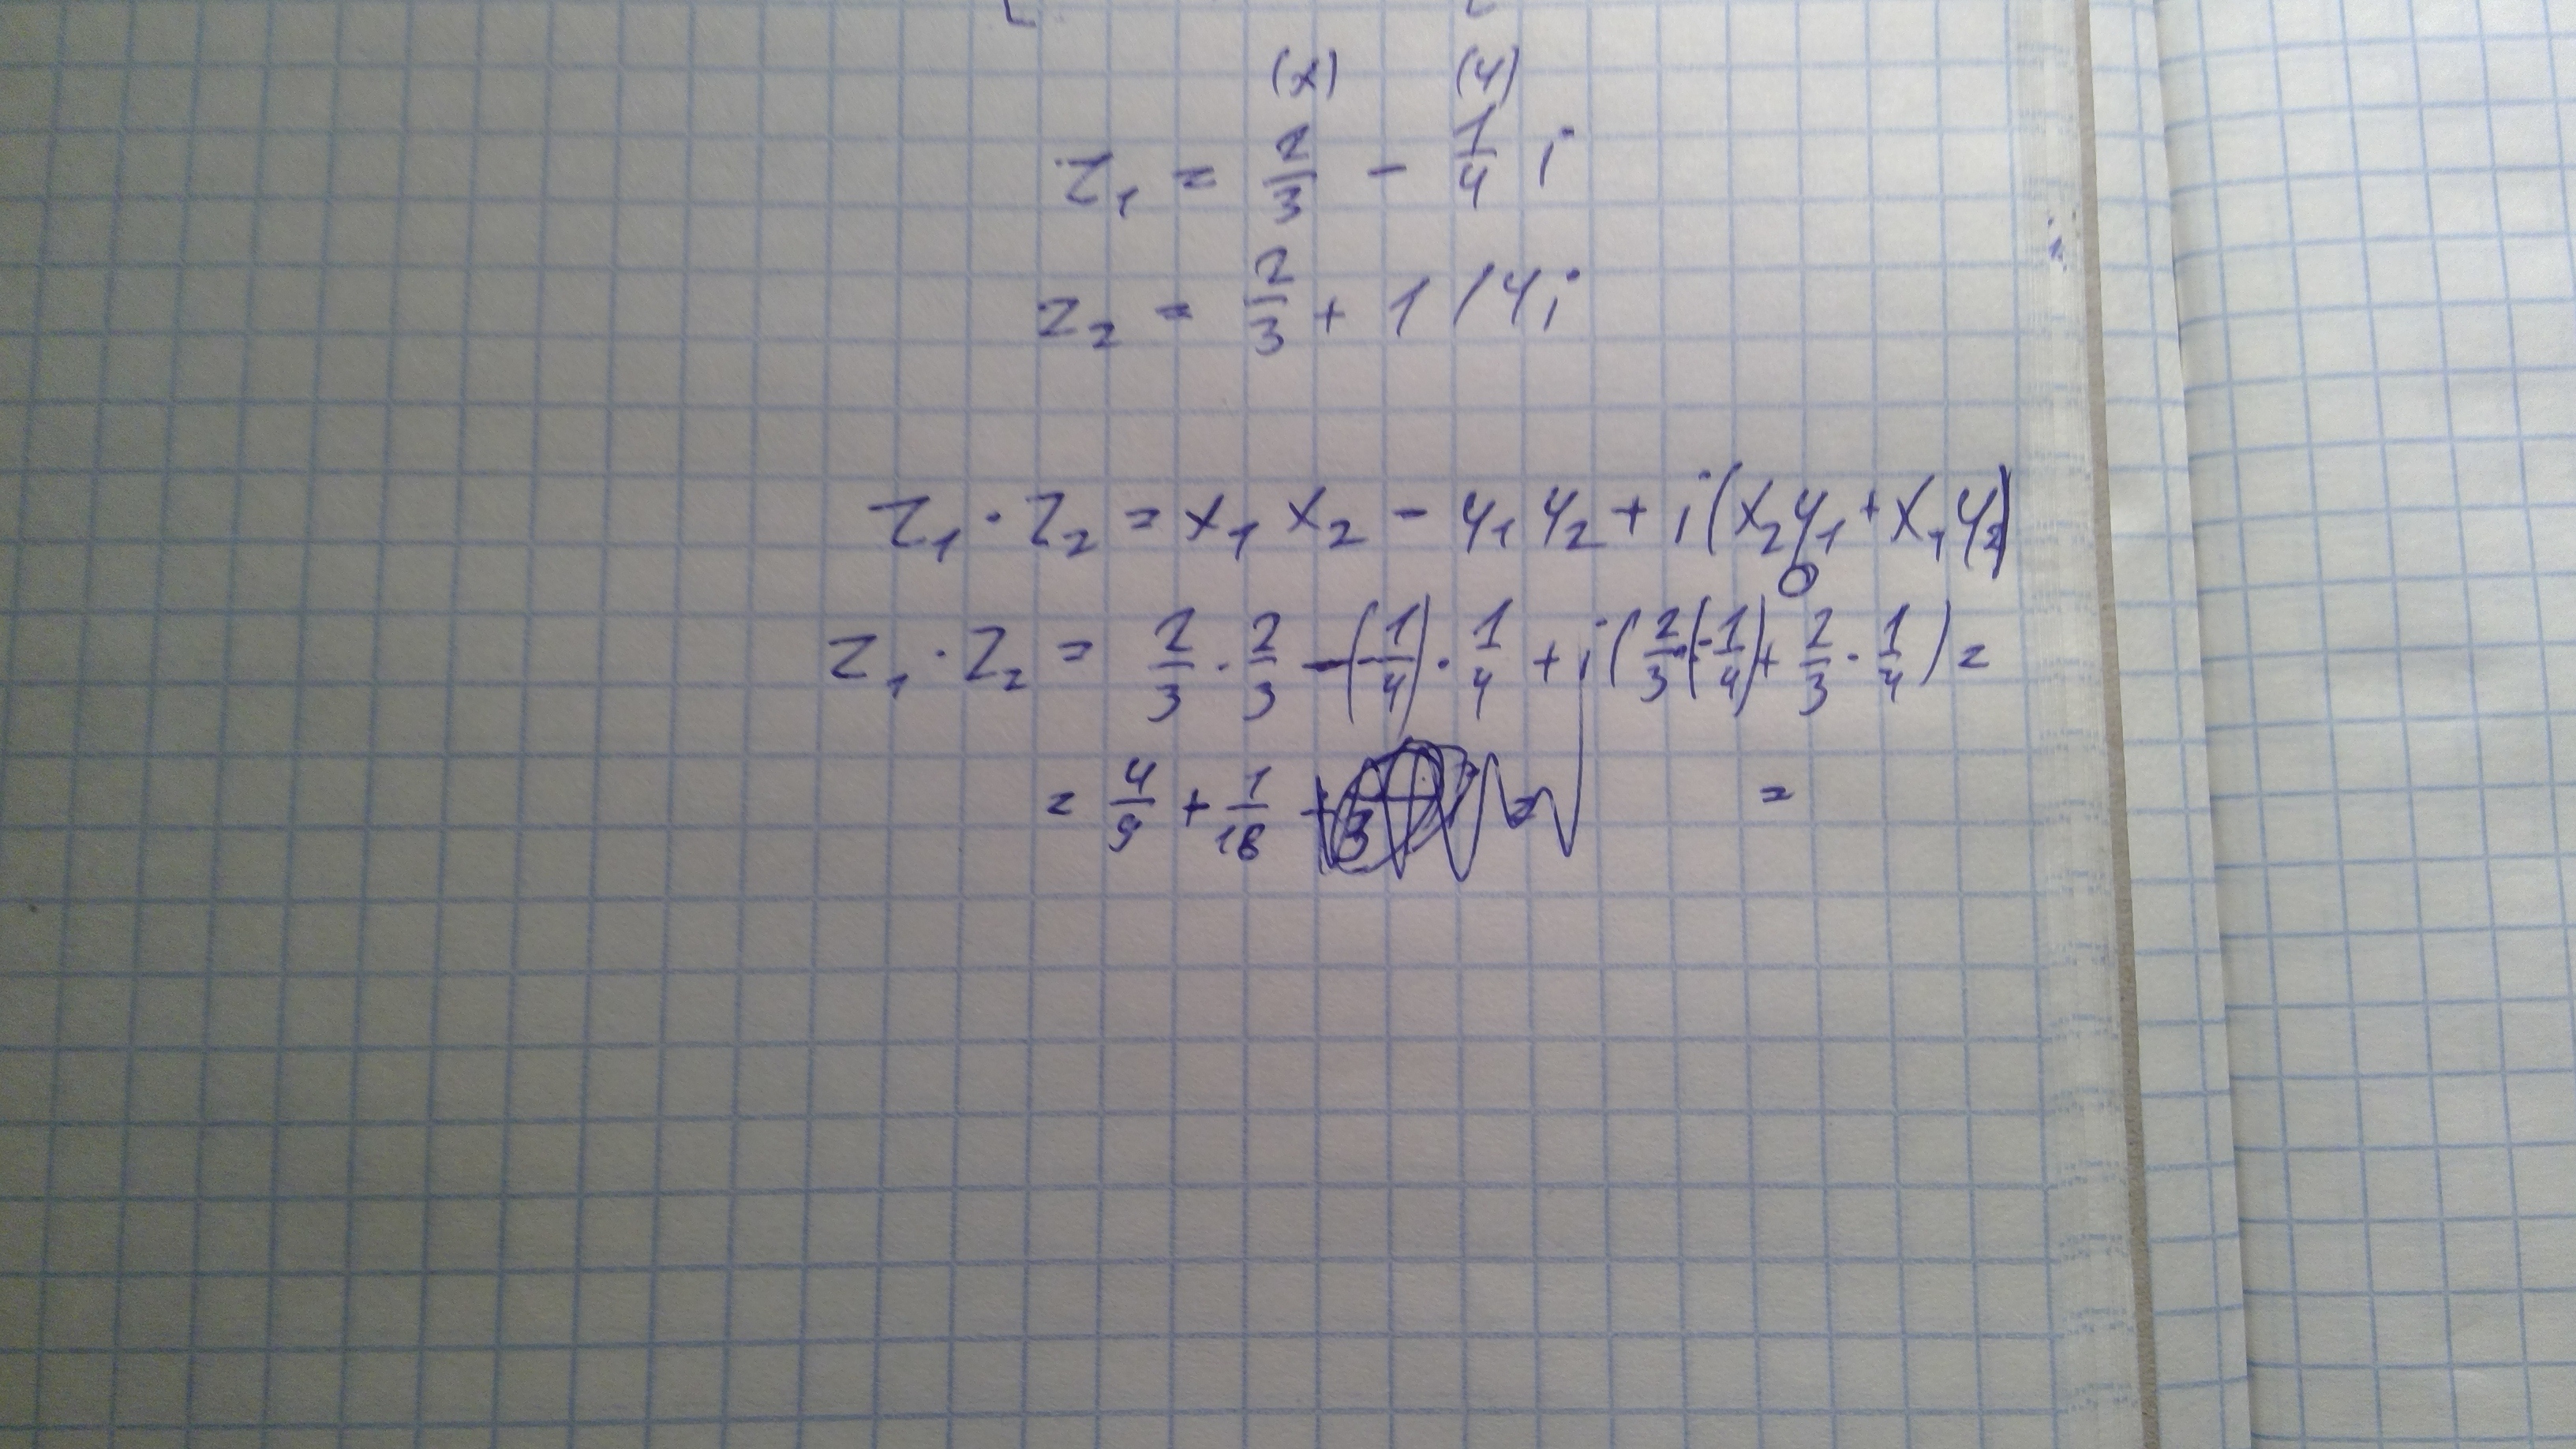 (x) (y)
z₁ = 2/3 - 1/4 i
z₂ = 2/3 + 1/4i
z₁ · z₂ = x₁ x₂ - y₁ y₂ + i(x₂y₁ + x₁y₂)
0
z₁ · z₂ = 2/3 · 2/3 - (-1/4) · 1/4 + i(2/3·(-1/4) + 2/3 · 1/4) =
= 4/9 + 1/16 =